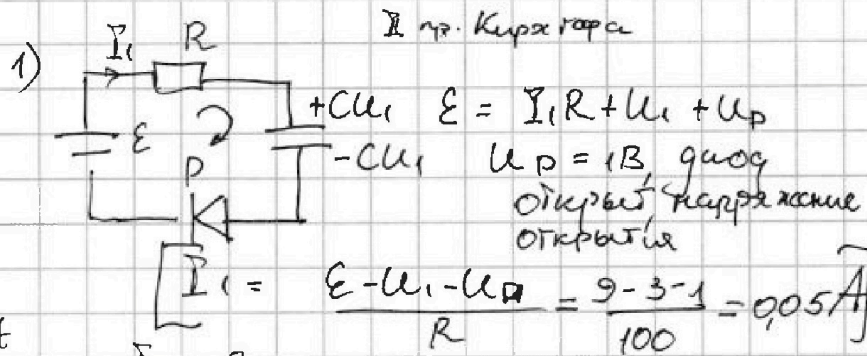 II пр. Кирхгофа
1) I₁ R
ε
+CU₁ ε = I₁R + U₁ + U_D
D -CU₁ U_D = 1В, диод
открыт, напряжение
открытия
I₁ = (ε - U₁ - U_D)/R = (9 - 3 - 1)/100 = 0,05 А